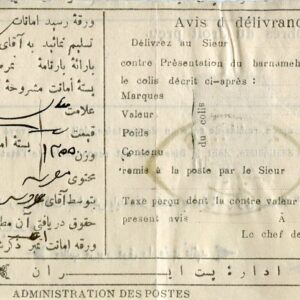 ورقه رسید امانات
Avis d délivranc
تسلیم نمائید به آقای
Délivrez au Sieur
بارائهٔ بارنامهٔ نمره
contre Présentation du barnameh
بستهٔ امانت مشروحهٔ
le colis décrit ci-après :
علامت
Marques
قیمت
Valeur
وزن ۱۲۰۰
Poids
محتوی
Contenu
du colis
بتوسط آقای
remis à la poste par le Sieur
حقوق دریافتی آن
Taxe perçu dent la contre valeur
ورقه امانت نمره ذکر
present avis A
Le chef de
اداره پست ایـران
ADMINISTRATION DES POSTES